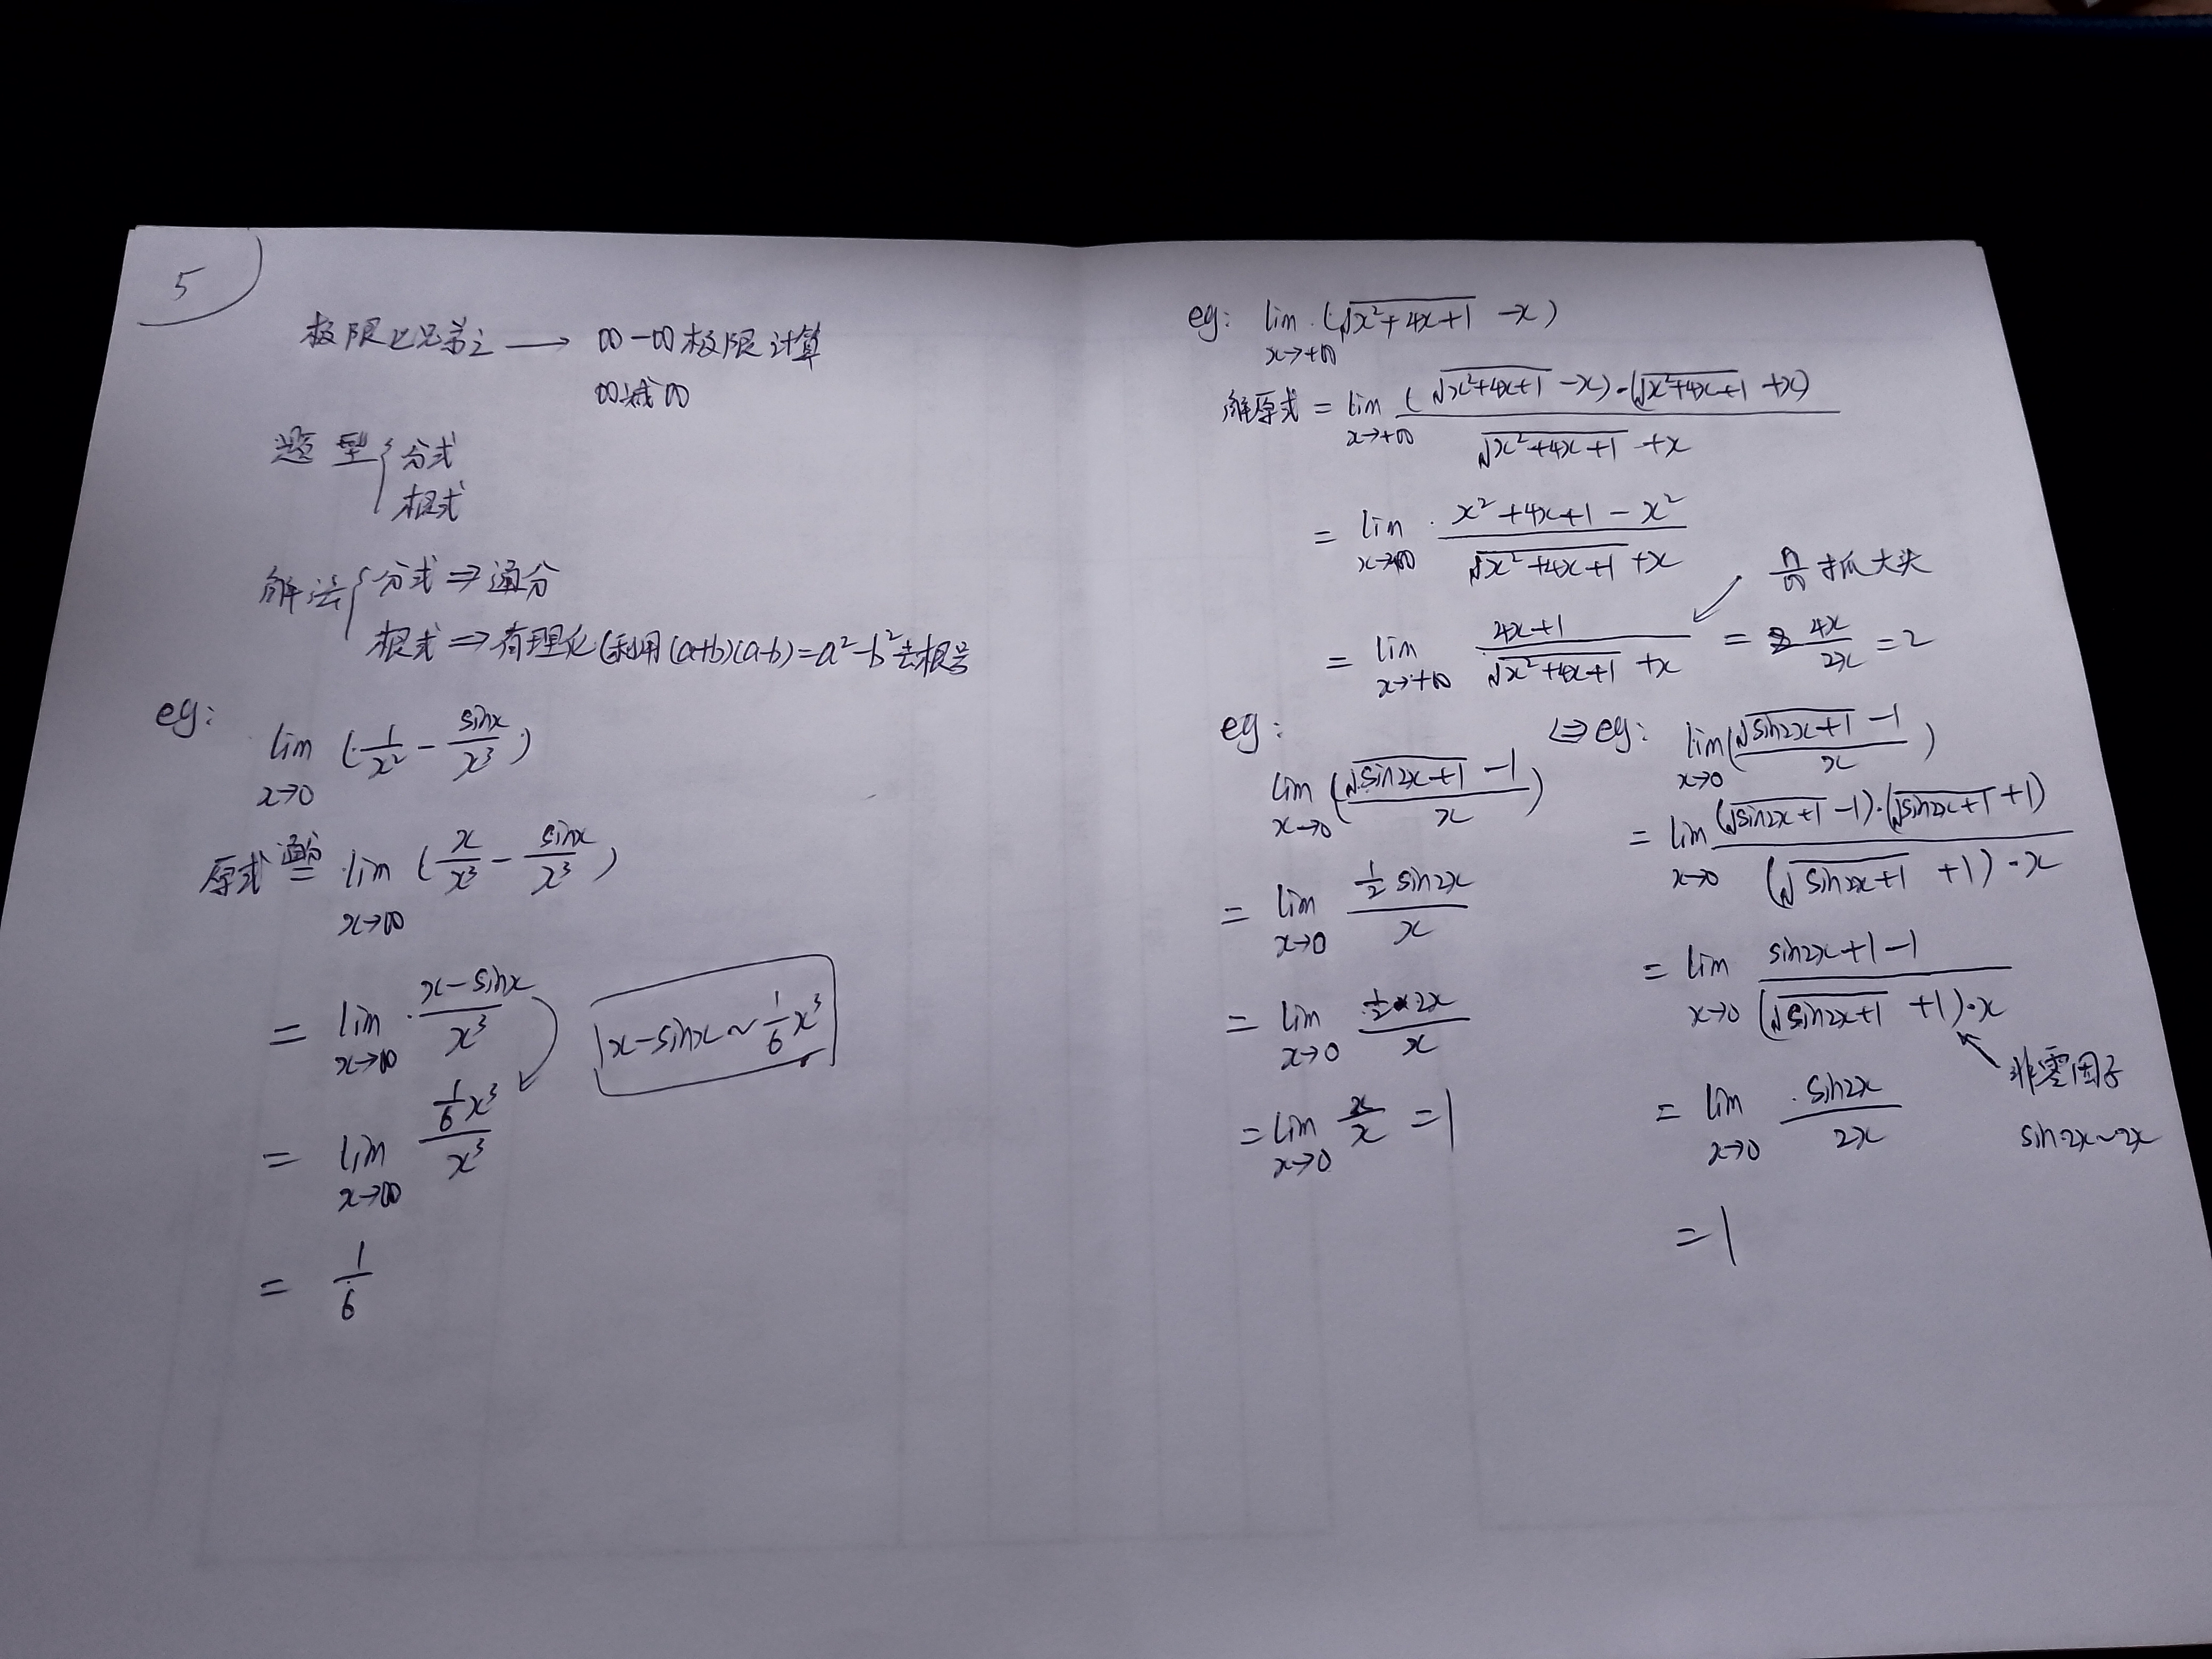 5
极限七兄弟之 → ∞-∞极限计算
∞减∞
题型{分式
根式
解法{分式⇒通分
根式⇒有理化(利用(a+b)(a-b)=a²-b²去根号
eg:
lim x→0 (1/x² - sinx/x³)
原式 通分= lim x→∞ (x/x³ - sinx/x³)
= lim x→∞ (x-sinx)/x³
x-sinx~1/6x³
= lim x→∞ (1/6x³)/x³
= 1/6
eg: lim x→+∞ (√(x²+4x+1) -x)
解原式 = lim x→+∞ ((√(x²+4x+1) -x)·(√(x²+4x+1) +x))/(√(x²+4x+1) +x)
= lim x→+∞ (x²+4x+1-x²)/(√(x²+4x+1) +x)
∞/∞抓大头
= lim x→+∞ (4x+1)/(√(x²+4x+1) +x) = 4x/2x = 2
eg:
lim x→0 ((√(sin2x+1) -1)/x)
= lim x→0 (1/2 sin2x)/x
= lim x→0 (1/2·2x)/x
= lim x→0 x/x = 1
⇔ eg: lim x→0 ((√(sin2x+1) -1)/x)
= lim x→0 ((√(sin2x+1) -1)·(√(sin2x+1) +1))/((√(sin2x+1) +1)·x)
= lim x→0 (sin2x+1-1)/((√(sin2x+1) +1)·x)
非零因子
= lim x→0 sin2x/2x
sin2x~2x
= 1